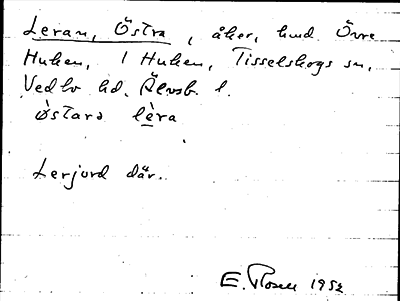 Leran, Östra, åker, hmd Övre
Huken, 1 Huken, Tisselskogs sn,
Vedbo hd. Älvsb. l.
òstara lèra
Lerjord där.
E. Rosell 1952